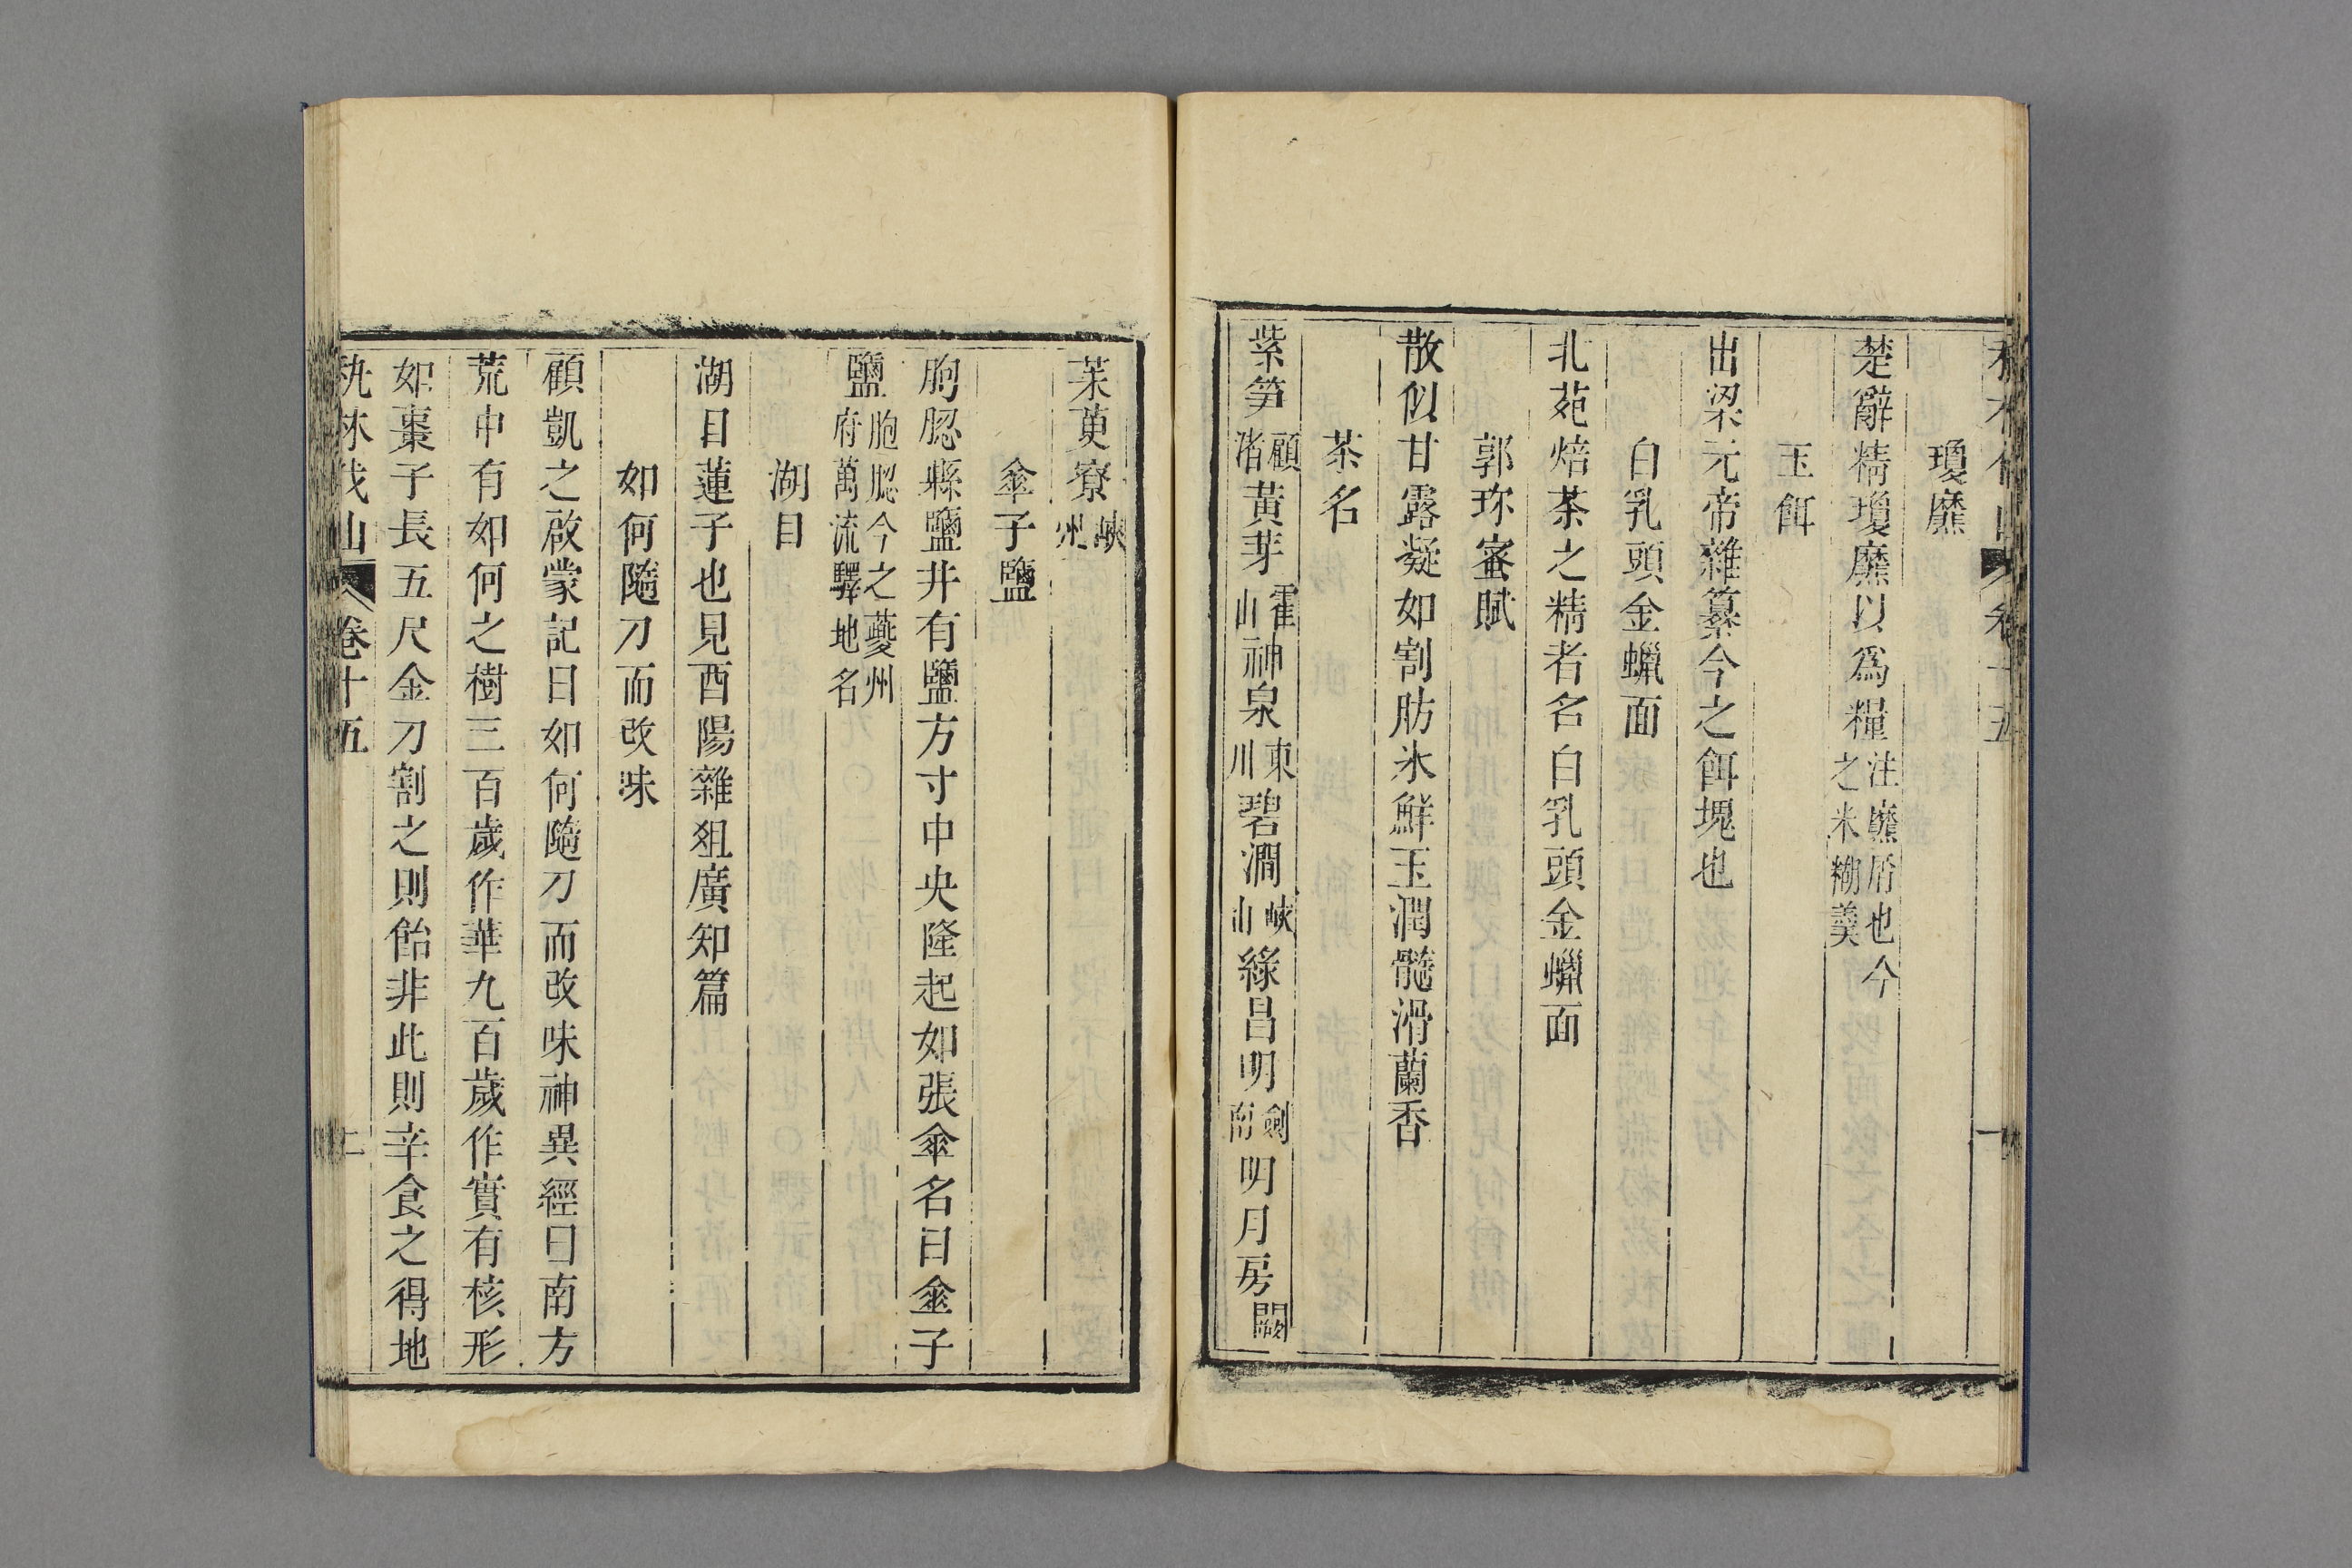 瓊䕷
楚辭精瓊䕷以爲糧注䕷屑也今之米糊羹
玉餌
出梁元帝雜纂今之餌塊也
白乳頭金蠟面
北苑焙茶之精者名白乳頭金蠟面
郭珎蜜賦
散似甘露凝如割肪氷鮮玉潤髓滑蘭香
茶名
紫笋顧渚黃芽霍山神泉東川碧澗峽山綠昌明劍南明月房闕
茱萸寮峽州
傘子鹽
朐䏰縣鹽井有鹽方寸中央隆起如張傘名曰傘子
鹽朐䏰今之夔州府萬流驛地名
湖目
湖目蓮子也見酉陽雜俎廣知篇
如何隨刀而改味
顧凱之啟蒙記曰如何隨刀而改味神異經曰南方
荒中有如何之樹三百歲作華九百歲作實有核形
如棗子長五尺金刀割之則飴非此則辛食之得地
秇林伐山 卷十五 二